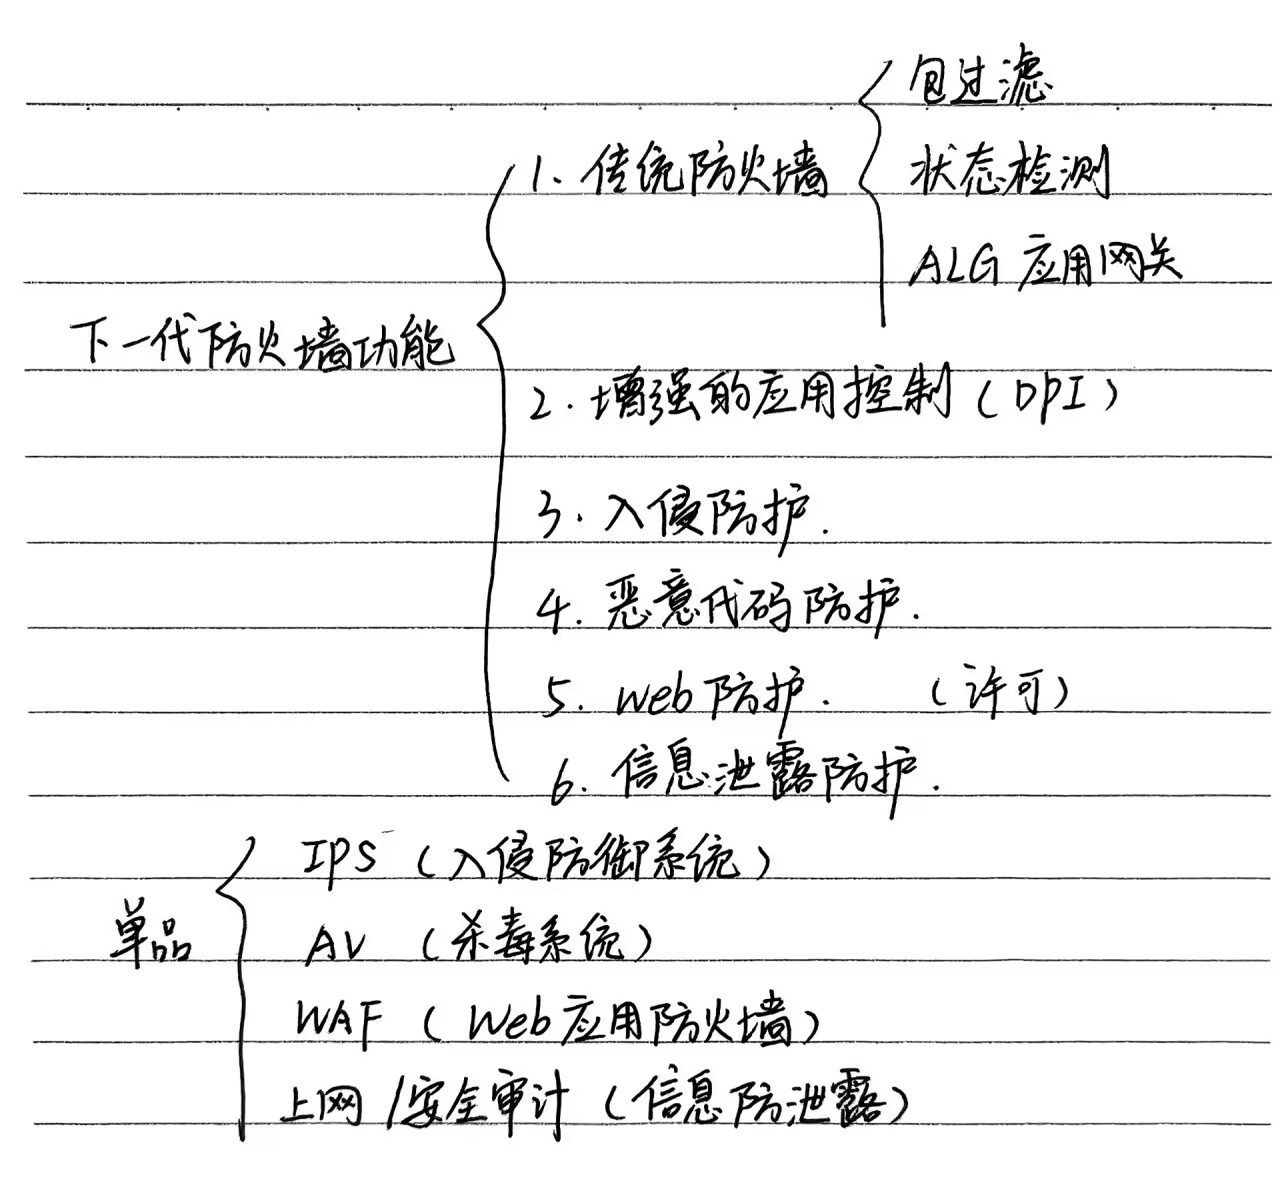 包过滤
1. 传统防火墙 状态检测
ALG 应用网关
下一代防火墙功能
2. 增强的应用控制（DPI）
3. 入侵防护.
4. 恶意代码防护.
5. Web防护. （许可）
6. 信息泄露防护.
IPS（入侵防御系统）
单品 AV （杀毒系统）
WAF （Web应用防火墙）
上网/安全审计（信息防泄露）